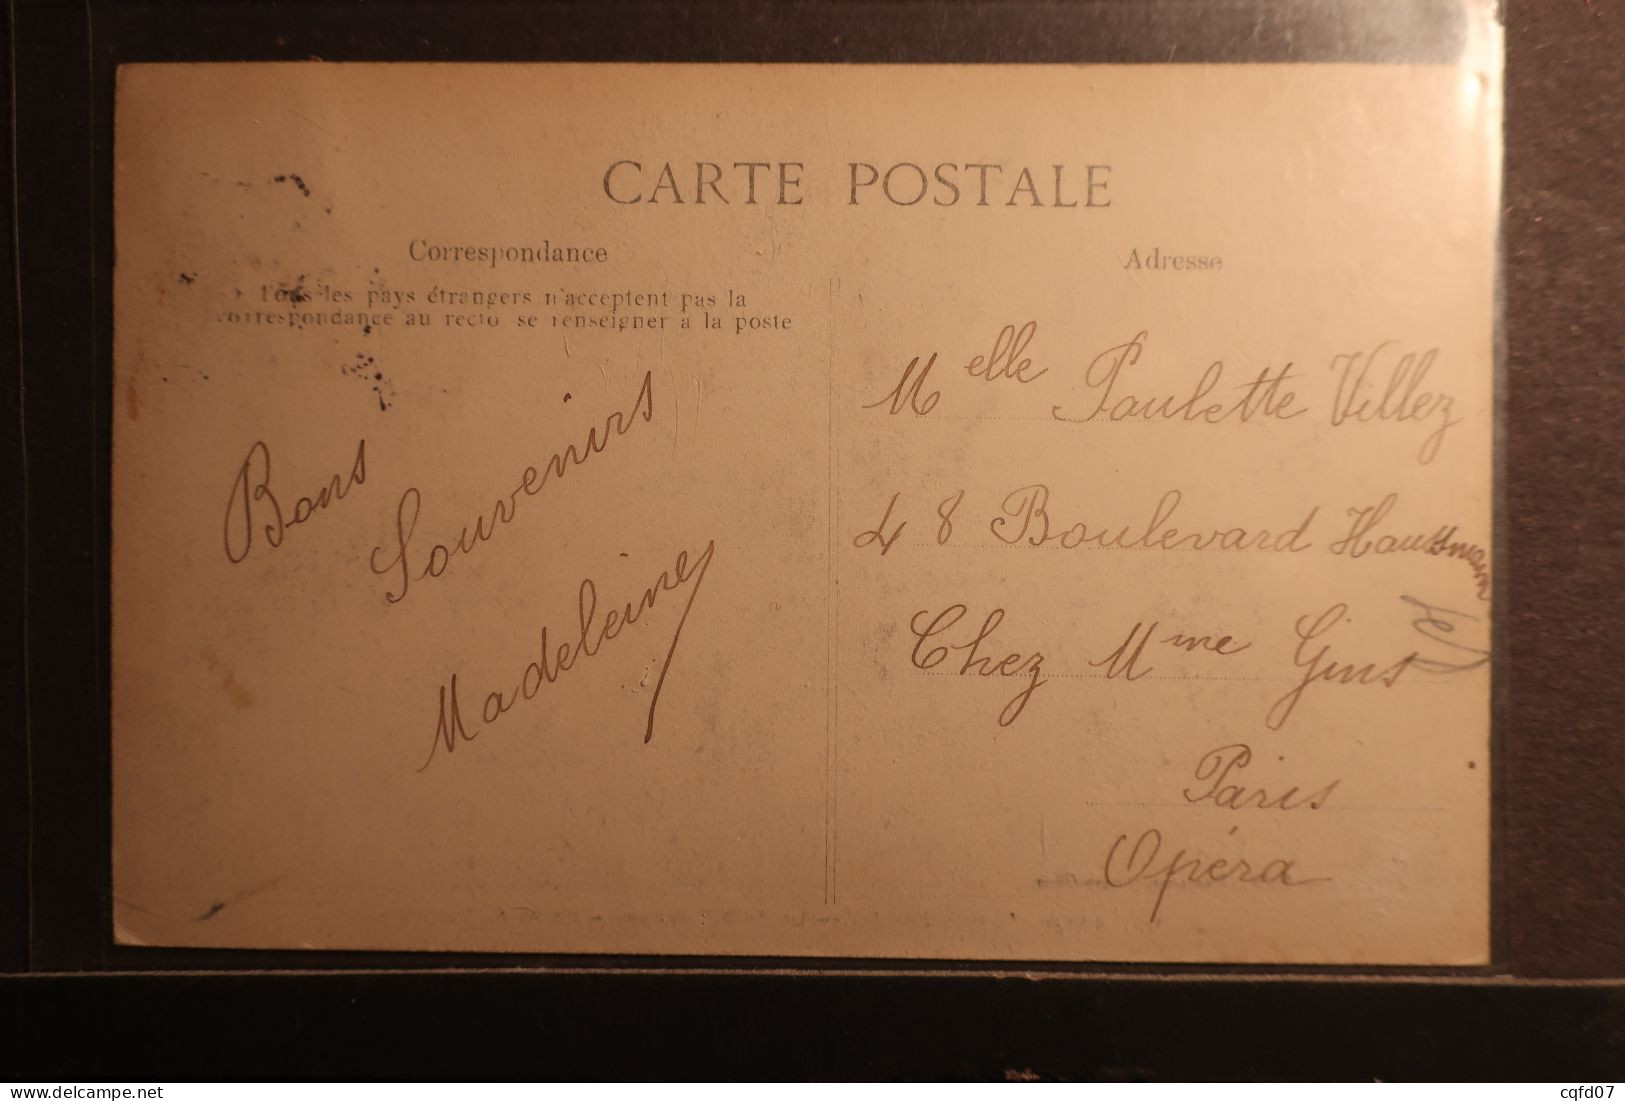 CARTE POSTALE
Correspondance
Tous les pays étrangers n'acceptent pas la
correspondance au recto se renseigner à la poste
Bons
Souvenirs
Madeleine
Adresse
Melle Paulette Villez
48 Boulevard Haussmann
Chez Mme Gins
Paris
Opéra
delcampe.net
cqfd07